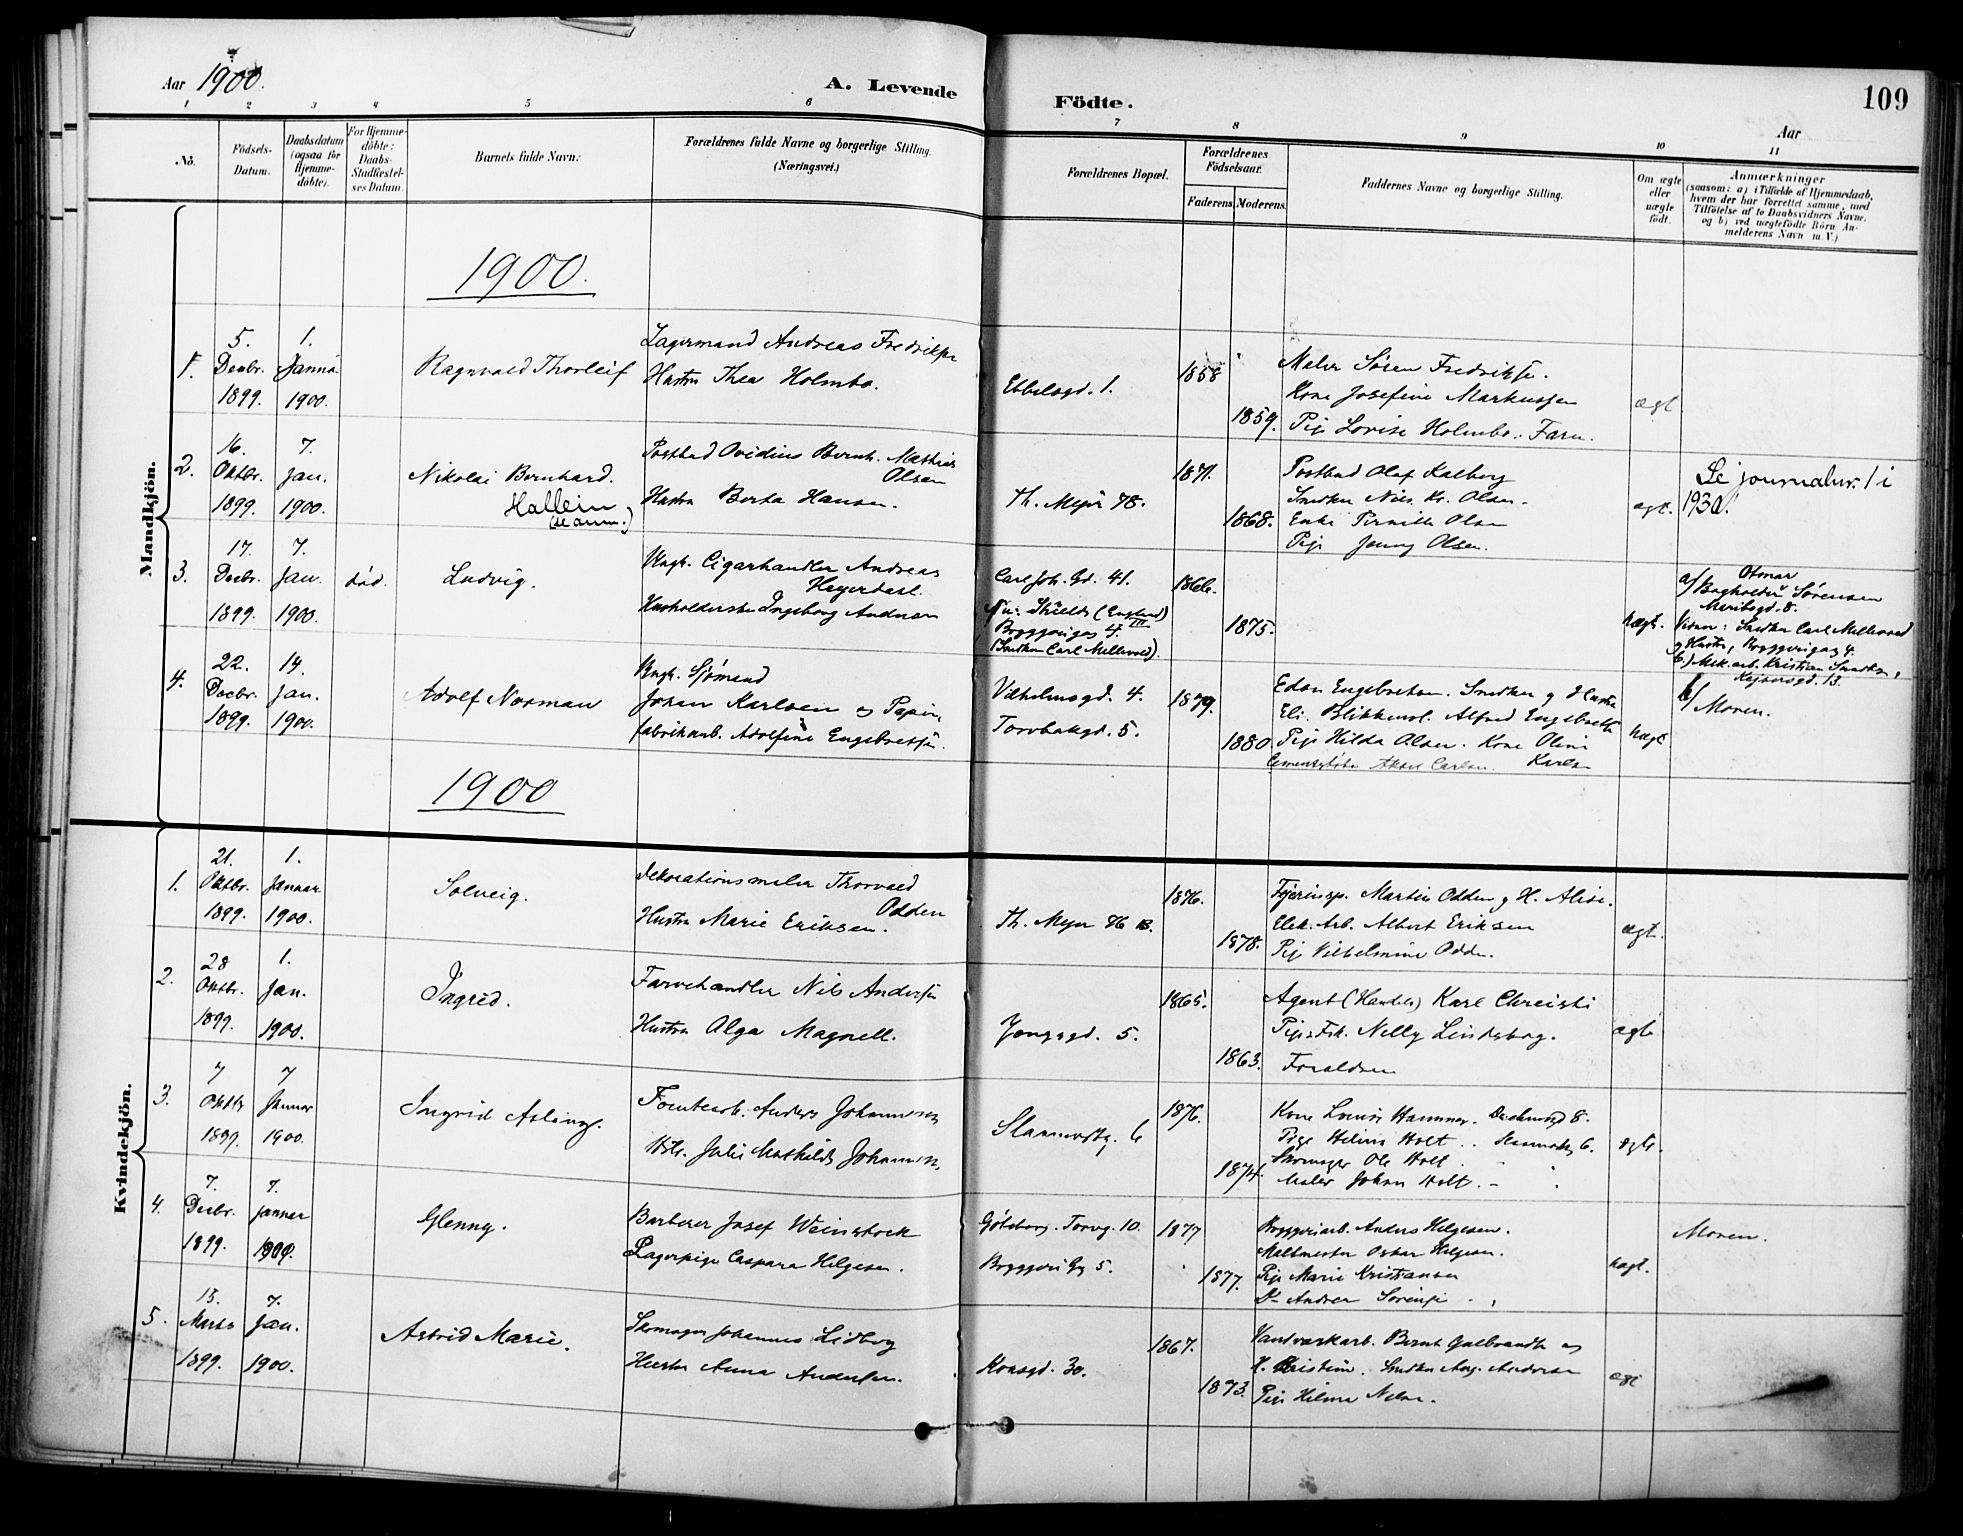 Aar 1900.
A. Levende Födte.
109
Aar
1 2 3 4 5 6 7 8 9 10 11
No.
Födsels-
Datum.
Daabsdatum
(ogsaa for
Hjemme-
döbte).
For Hjemme-
döbte:
Daabs-
Stadfæstel-
ses Datum.
Barnets fulde Navn:
Forældrenes fulde Navne og borgerlige Stilling.
(Næringsvei.)
Forældrenes Bopæl.
Forældrenes
Födselsaar.
Faderens.
Moderens.
Faddernes Navne og borgerlige Stilling.
Om ægte
eller
uægte
födt.
Anmærkninger
(saasom: a) i Tilfælde af Hjemmedaab,
hvem der har forrettet samme, med
Tilföielse af to Daabsvidners Navne,
og b) ved uægtefödte Börn An-
melderens Navn m. V.)
Mandkjön.
1900.
1.
5.
Decbr.
1899.
1.
Janua
1900.
Ragnvald Thorleif
Lagermand Andreas Fredriksen
Hustru Thea Holmbo.
Ebbelsgd. 1.
1858
1859.
Maler Søren Fredriksen.
Kone Josefine Markussen
Pige Lovise Holmbo. Faren.
ægt.
2.
16.
Oktbr.
1899.
7.
Jan.
1900.
Nikolai Bernhard.
Hallein
(se anm.)
Postbud Ovidius Bernh. Mathias
Olsen
Hustru Berta Hansen.
Th. Meyer 78.
1871.
1868.
Postbud Olaf Kalborg
Snedker Nils Kr. Olsen.
Enke Pernille Olsen
Pige Jenny Olsen.
ægt.
Se journalnr. 1 i
1930.
3.
17.
Decbr.
1899.
7.
Jan.
1900.
død.
Ludvig.
Ungk. Cigarhandler Andreas
Heyerdahl.
Husholderske Ingeborg Andersen
Carl Joh. Gd. 41.
Shields (England)
Bryggerigd 4. III
(Snedker Carl Mellevold).
1866.
1875.
uægt.
Otmar
a/ Bogholder Sørensen
Maribogd. 8.
Vidner: Snedker Carl Mellevold
og Hustru, Bryggerigd 4.
b/ Mek. arb. Kristian Snedker,
Keysersgd. 13.
4.
22.
Decbr.
1899.
14.
Jan.
1900.
Adolf Norman
Ungk. Sjømand
Johan Karlsen og Papir
fabrikarb. Adolfine Engebretsen.
Vilhelmsgd. 4.
Torvbakgd. 5.
1879.
1880.
Edon Engebretsen. Snedker og Hustru
Eli. Blikkensl. Alfred Engebretsen
Pige Hilda Olsen. Kone Oline
Karlsen
Cementstøber Aksel Carlsen.
uægt.
b/ Moren.
1900
Kvindekjön.
1.
21.
Oktbr.
1899.
1.
Januar
1900.
Solveig.
Dekorationsmaler Thorvald
Odden
Hustru Marie Eriksen.
Th. Meyer 76 B.
1876.
1878.
Martin Odden og H. Alise.
Elek. Arb. Albert Eriksen
Pige Vilhelmine Odden.
ægt.
2.
28
Oktbr.
1899.
1.
Jan.
1900.
Ingrid.
Farvehandler Nils Andersen
Hustru Olga Magnell.
Yongsgd. 5.
1865.
1863.
Agent (Handels) Karl Christi
Nelly Lindeborg.
Foreldren
ægte
3.
7
Oktbr
1899.
7
Januar
1900.
Ingrid Aslaug.
Fomtearb. Anders Johannesen
Hstr. Julie Mathilde Johannesen
Slammestg. 6
1876.
1874.
Kone Lovise Hammer. 8.
Pige Helina Holt. 6.
Skomager Ole Holt.
Maler Johan Holt. -
ægte.
4.
7.
Decbr.
1899.
7.
Januar
1900.
Glenny.
Barberer Josef Weinstock
Lagerpige Caspara Helgesen.
Göteborg. Torvg. 10.
Bryggeri Gd 5.
1877
1877.
Bryggeriarb. Anders Helgesen.
Maltmester Oskar Helgesen.
Pige Marie Kristiansen
Do Andrea Sørensen
uægt.
Moren.
5.
15.
Marts
1899.
7.
Jan.
1900.
Astrid Marie.
Skomager Johannes Lidborg
Hustru Anna Andersen.
Korsgd. 30.
1867.
1873.
Vandværkarb. Bernt Gulbrandsen og
H. Kristine. Snedker Aug. Andersen
Pige Hilma Nilsen.
ægt